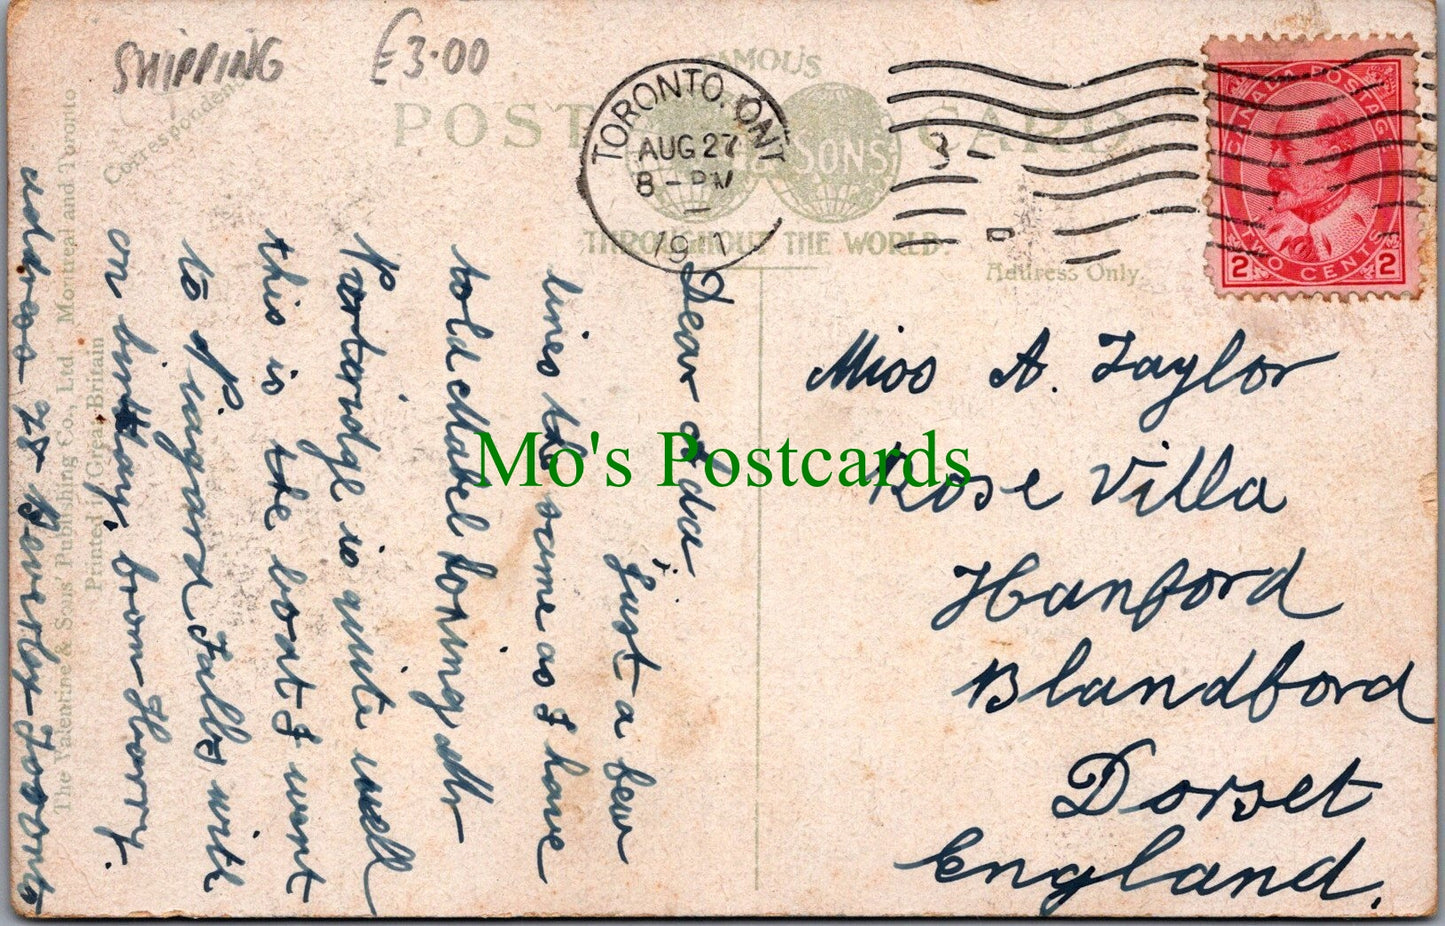 SHIPPING £3.00
FAMOUS
POST CARD
SONS
THROUGHOUT THE WORLD.
Correspondence
Address Only.
TORONTO, ONT
AUG 27
8 - PM
CANADA POSTAGE
2 TWO CENTS 2
Mo's Postcards
Miss A. Taylor
Rose Villa
Hanford
Blandford
Dorset
England.
Dear
Just a few
lines the same as I have
told Mabel hoping Mr
Partridge is quite well
this is the boat I went
to Niagara Falls with
on birthday, from Harry.
address 75 Beverley Toronto
The Valentine & Sons' Publishing Co., Ltd. Montreal and Toronto
Printed in Great Britain